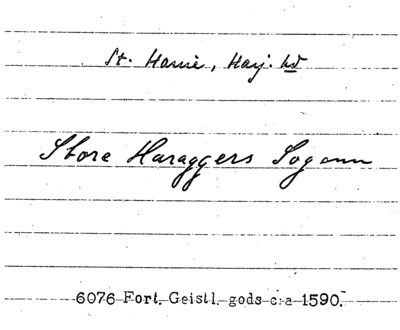 St. Harrie, Harj. hd
Store Haraggers Sogenn
6076 Fort. Geistl. gods c:a 1590.